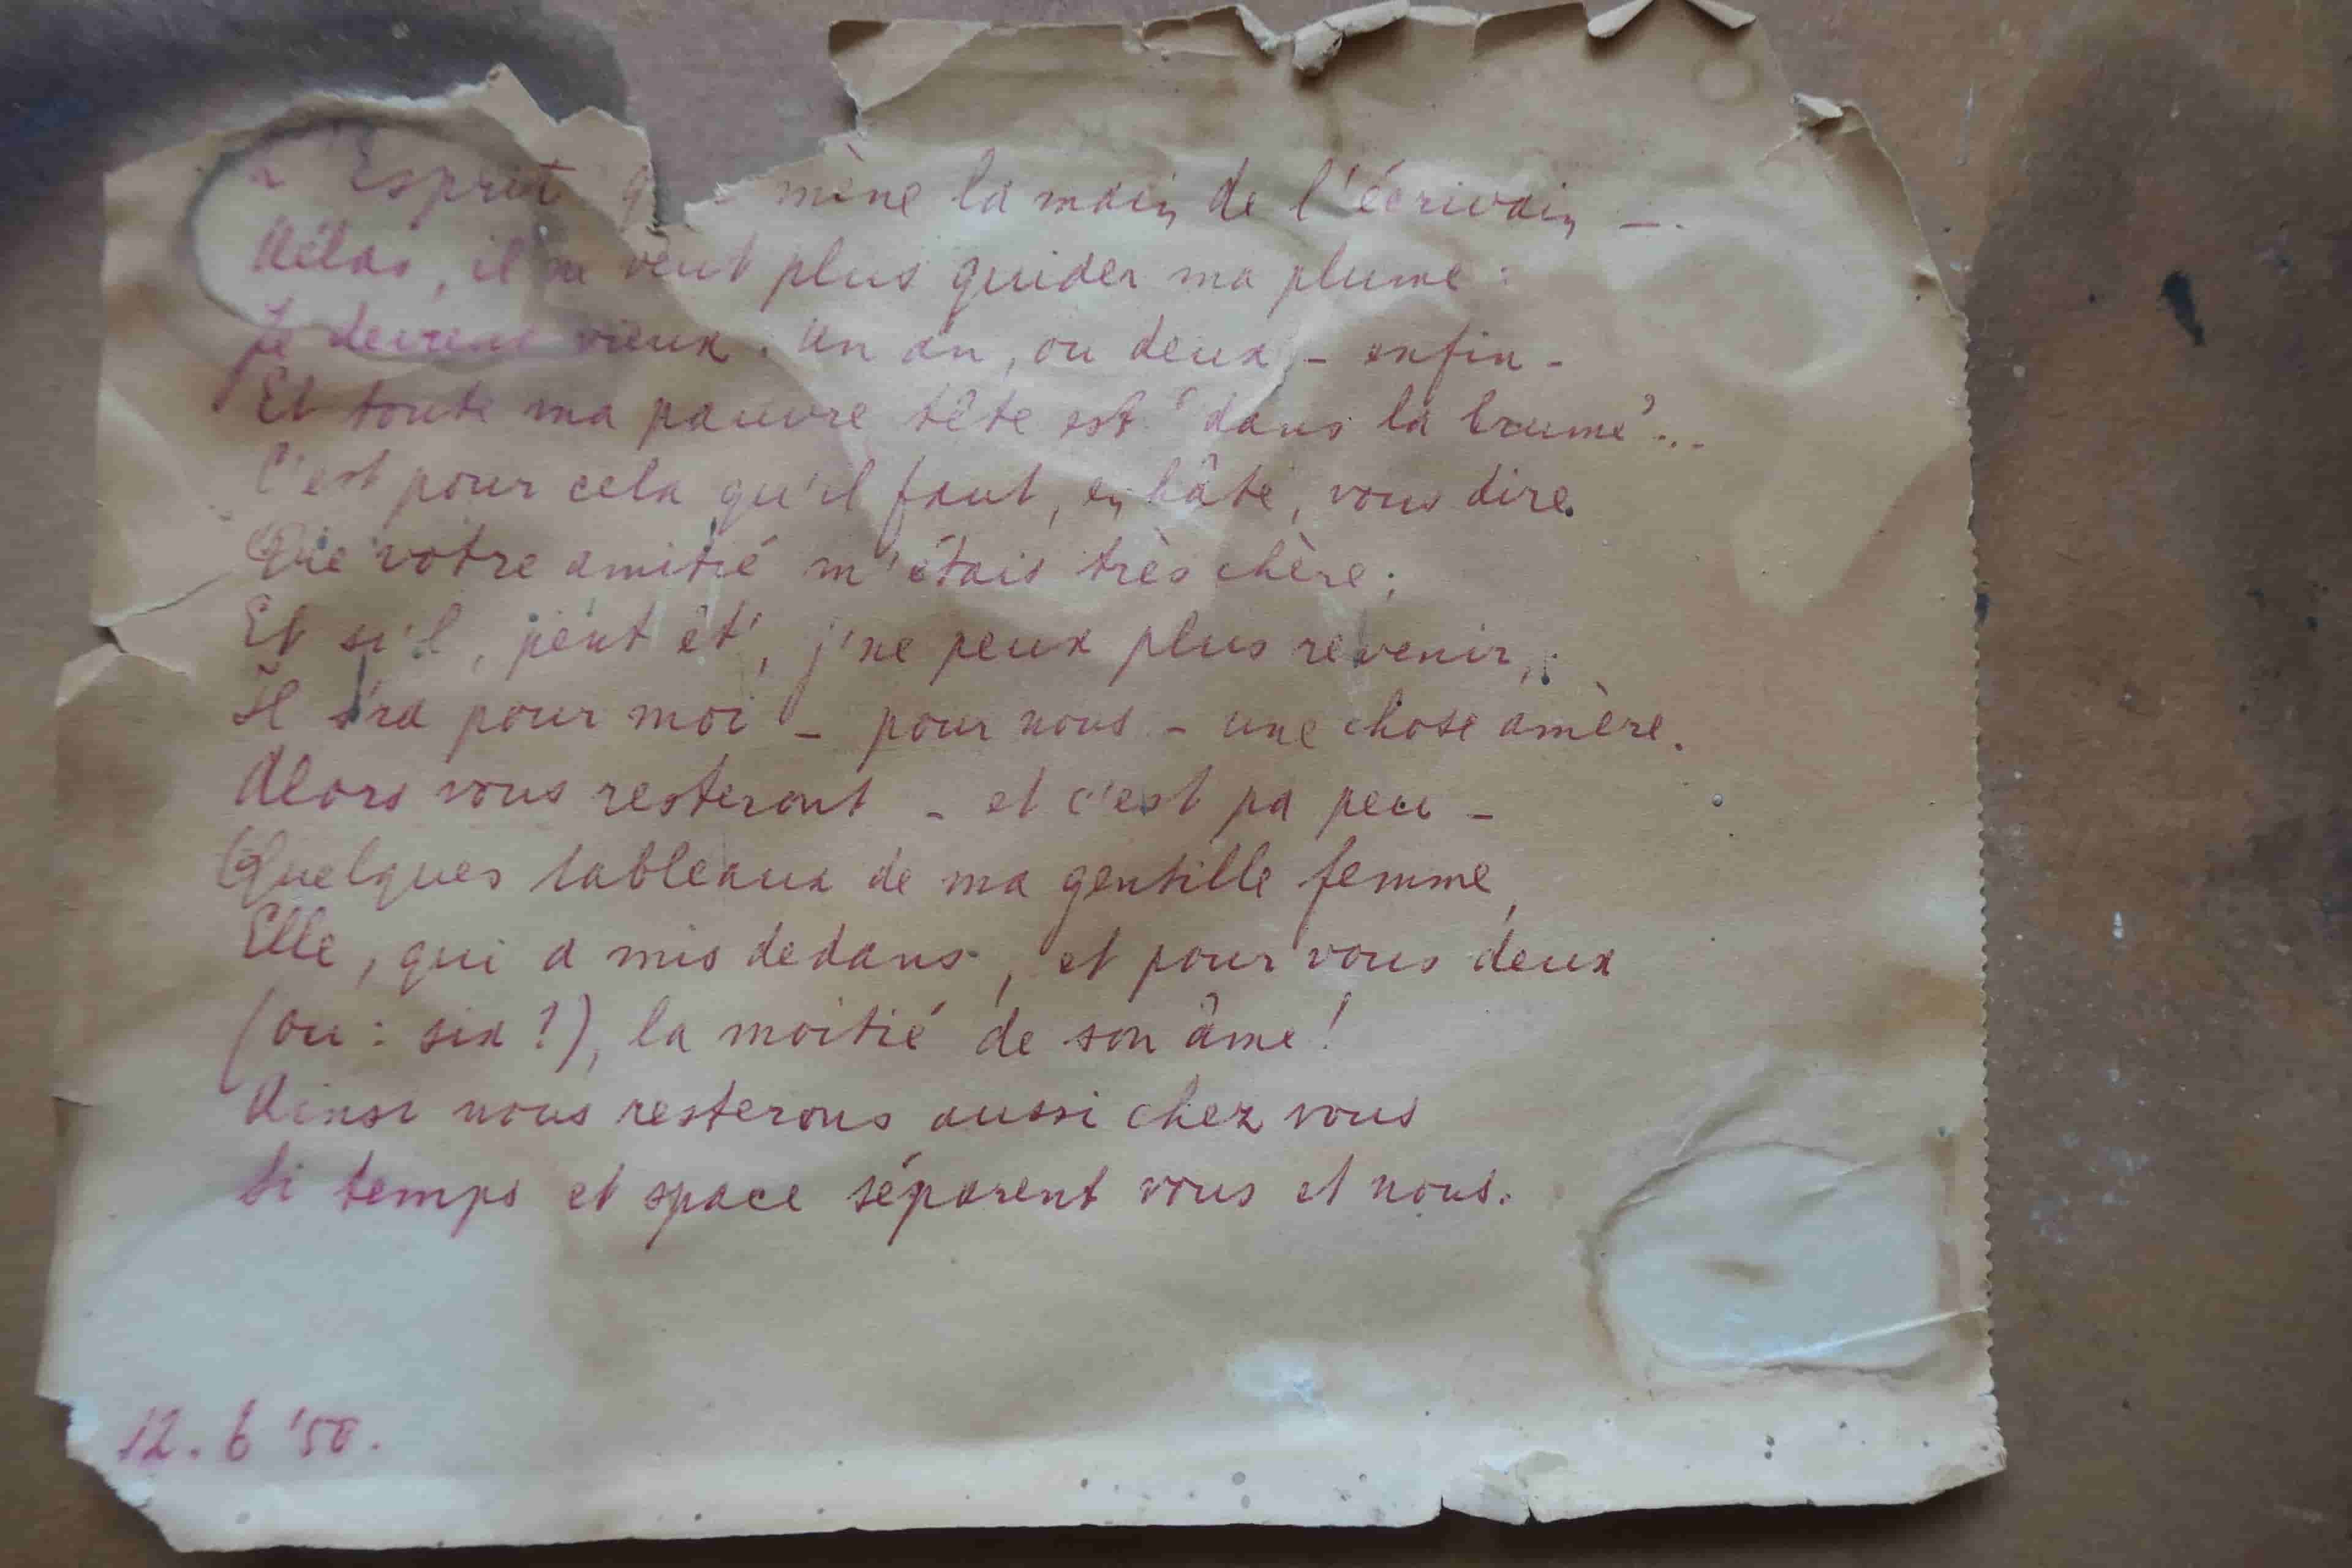 Esprit mène la main de l'écrivain —.
Hélas, il ne veut plus guider ma plume :
Je deviens vieux. Un an, ou deux, - enfin -
Et toute ma pauvre tête est "dans la brume"...
C'est pour cela qu'il faut, en hâte, vous dire
Que votre amitié m'étais très chère ;
Et si'l, peut êt', j'ne peux plus revenir,
Il s'ra pour moi - pour nous - une chose amère.
Alors vous resteront - et c'est pa peu -
Quelques tableaux de ma gentille femme,
Elle, qui a mis dedans, et pour vous deux
(ou : six ?), la moitié de son âme !
Ainsi nous resterons aussi chez vous
Si temps et space séparent vous et nous.
12. 6 '50.